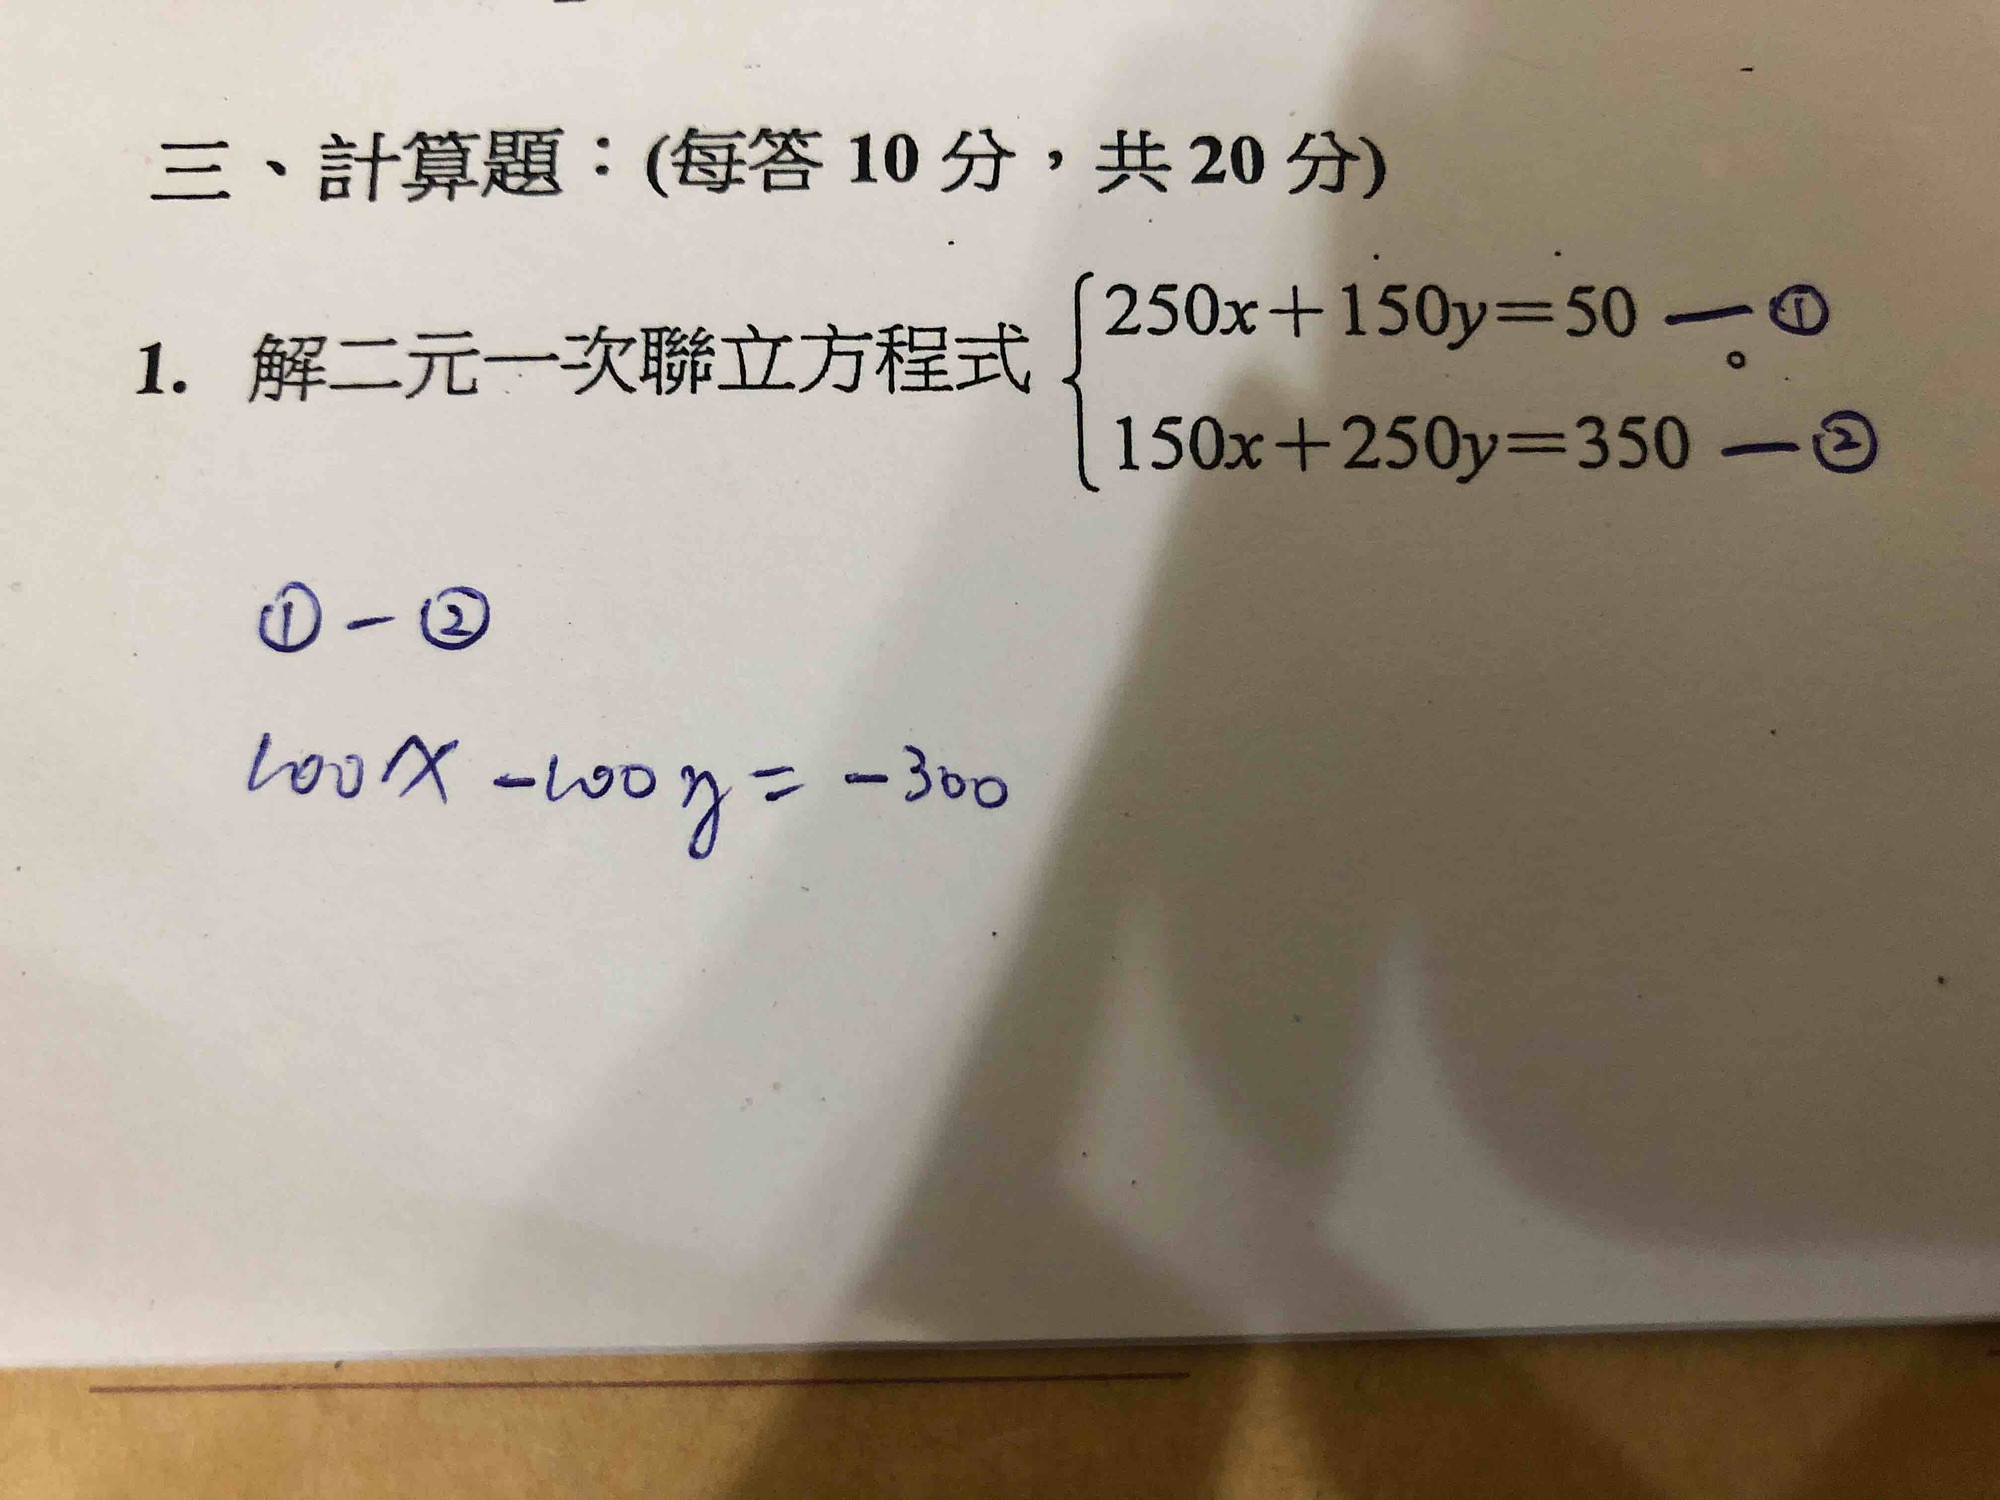 三、計算題：(每答 10 分，共 20 分)
1. 解二元一次聯立方程式 250x＋150y＝50 — ①
150x＋250y＝350 — ②
。
① − ②
100x −100y = −300